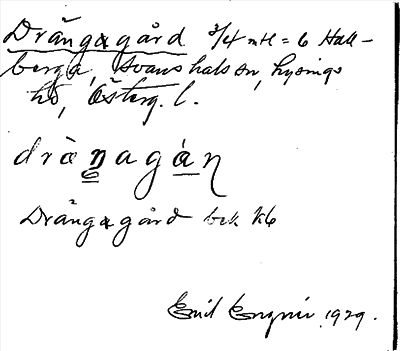 Drängagård 3/4 mtl = 6 Hall-
berga, Svanshals sn, Lysings
hd, Österg. l.
dràŋagán
Drängagård bek K6
Emil 1929.